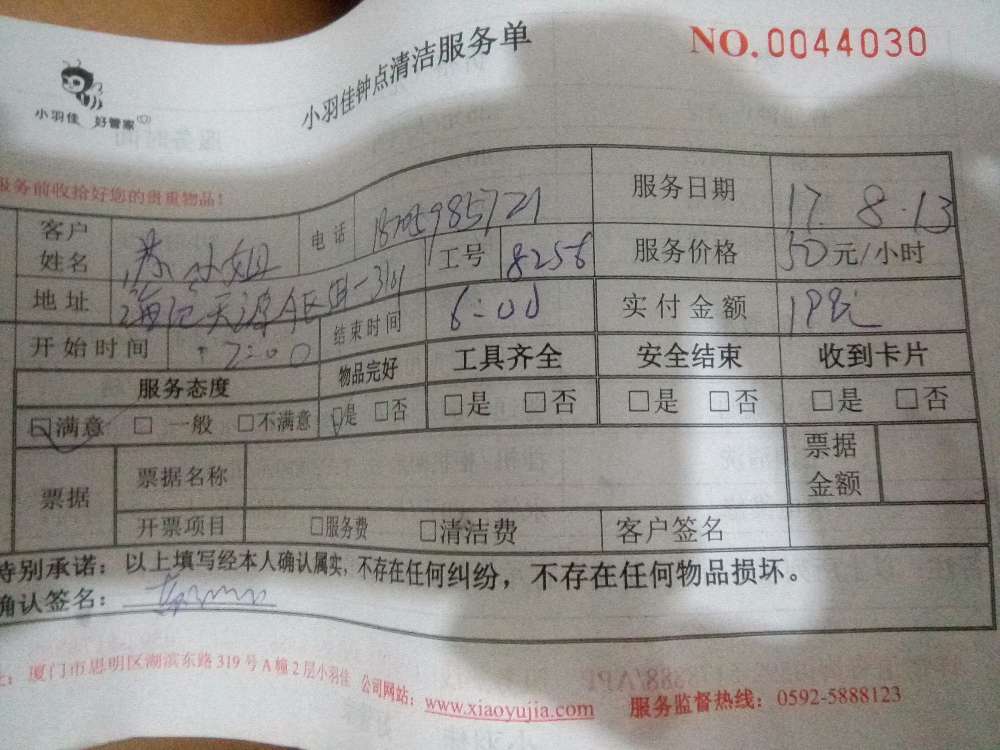 小羽佳 好管家
小羽佳钟点清洁服务单
NO.0044030
服务前收拾好您的贵重物品！
客户姓名 小姐 电话 服务日期 17.8.13
地址 工号 8256 服务价格 50元/小时
开始时间 2:00 结束时间 6:00 实付金额
服务态度 物品完好 工具齐全 安全结束 收到卡片
□满意 □一般 □不满意 □是 □否 □是 □否 □是 □否 □是 □否
票据 票据名称 票据金额
开票项目 □服务费 □清洁费 客户签名
特别承诺：以上填写经本人确认属实，不存在任何纠纷，不存在任何物品损坏。
确认签名：
厦门市思明区湖滨东路319号A幢2层小羽佳 公司网站：www.xiaoyujia.com 服务监督热线：0592-5888123